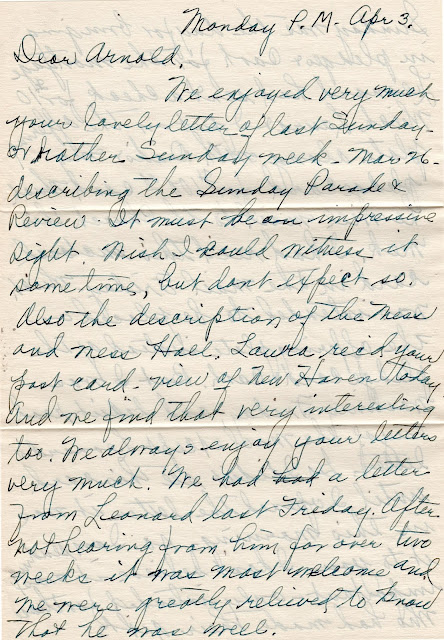 Monday P.M. Apr 3.
Dear Arnold,
We enjoyed very much
your lovely letter of last Sunday-
or rather Sunday week- Mar 26-
describing the Sunday Parade &
Review It must be an impressive
sight. Wish I could witness it
sometime, but dont expect so.
Also the description of the Mess
and mess Hall. Laura rec'd your
post card- view of New Haven today.
And we find that very interesting
too. We always enjoy your letters
very much. We had had a letter
from Leonard last Friday. After
not hearing from him for over two
weeks it was most welcome and
we were greatly relieved to know
that he was well.